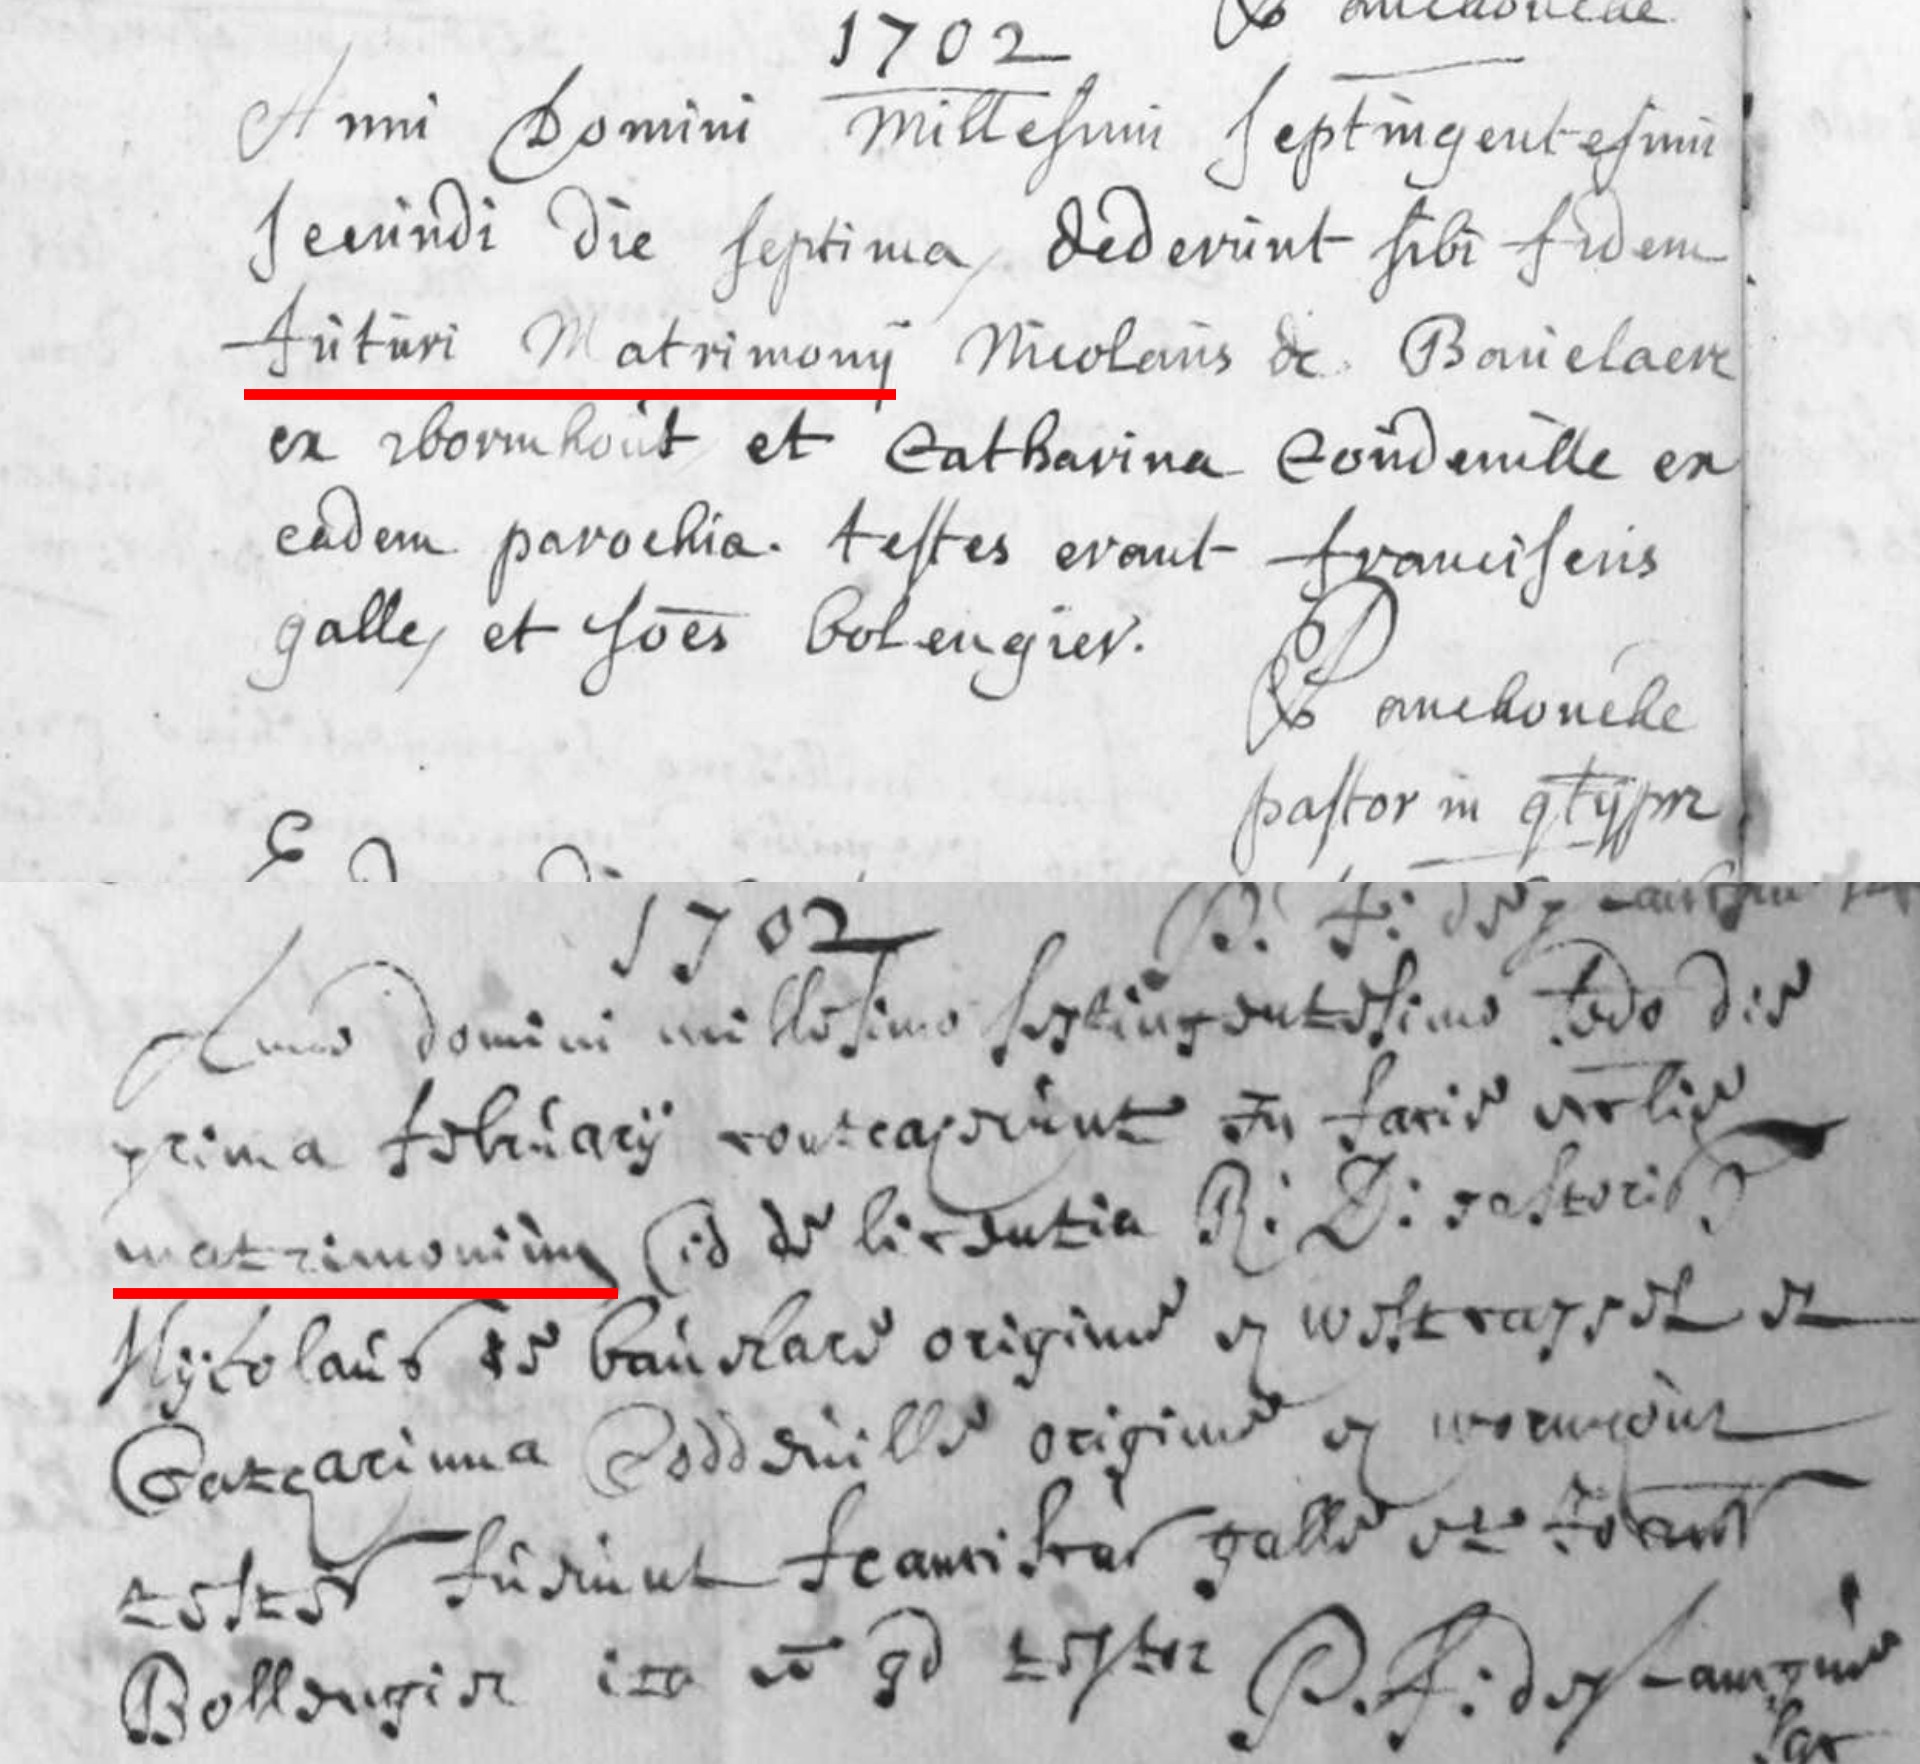 1702
Anni Domini Millesimi septingentesimi
secundi die septima, dederunt sibi fidem
futuri Matrimonÿ Nicolaus de Bauelaere
ex wormhout et Catharina Coudeuille ex
eadem parochia. testes erant franciscus
galle, et Joēs bolengier.
pastor in
1702
Anno domini millesimo septingentesimo 2do die
prima februarÿ contraxerunt in facie ecclie
matrimonium id de licentia R: D: pastoris
Nÿcolaus de bauelare origine ex westcappel et
Catharinna Coddeuille origine ex wormhout
testes fuerunt franciscus galle et Joannes
Bollengier ita est qd testor
P. F: